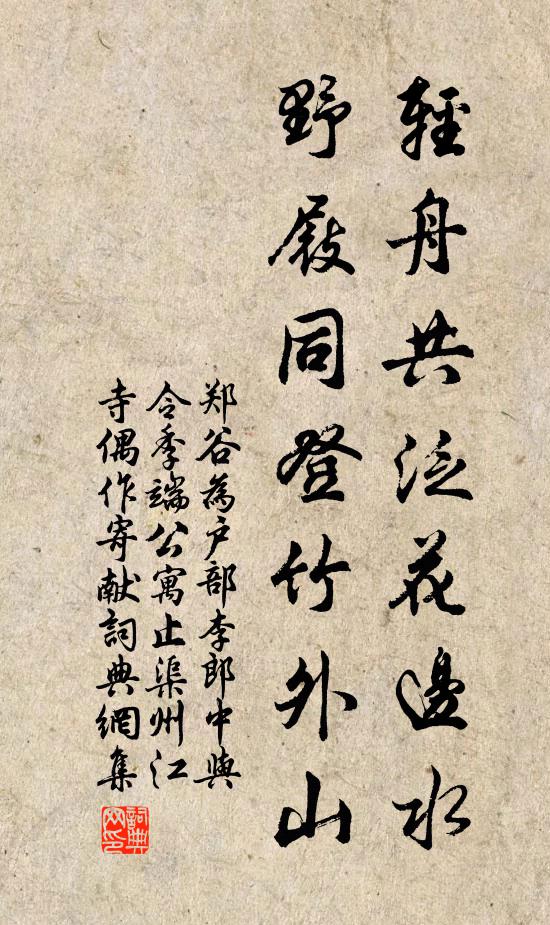 輕舟共泛花邊水
野屐同登竹外山
郑谷為户部李郎中與
令季端公寓止渠州江
寺偶作寄献詞典網集
詞典网印